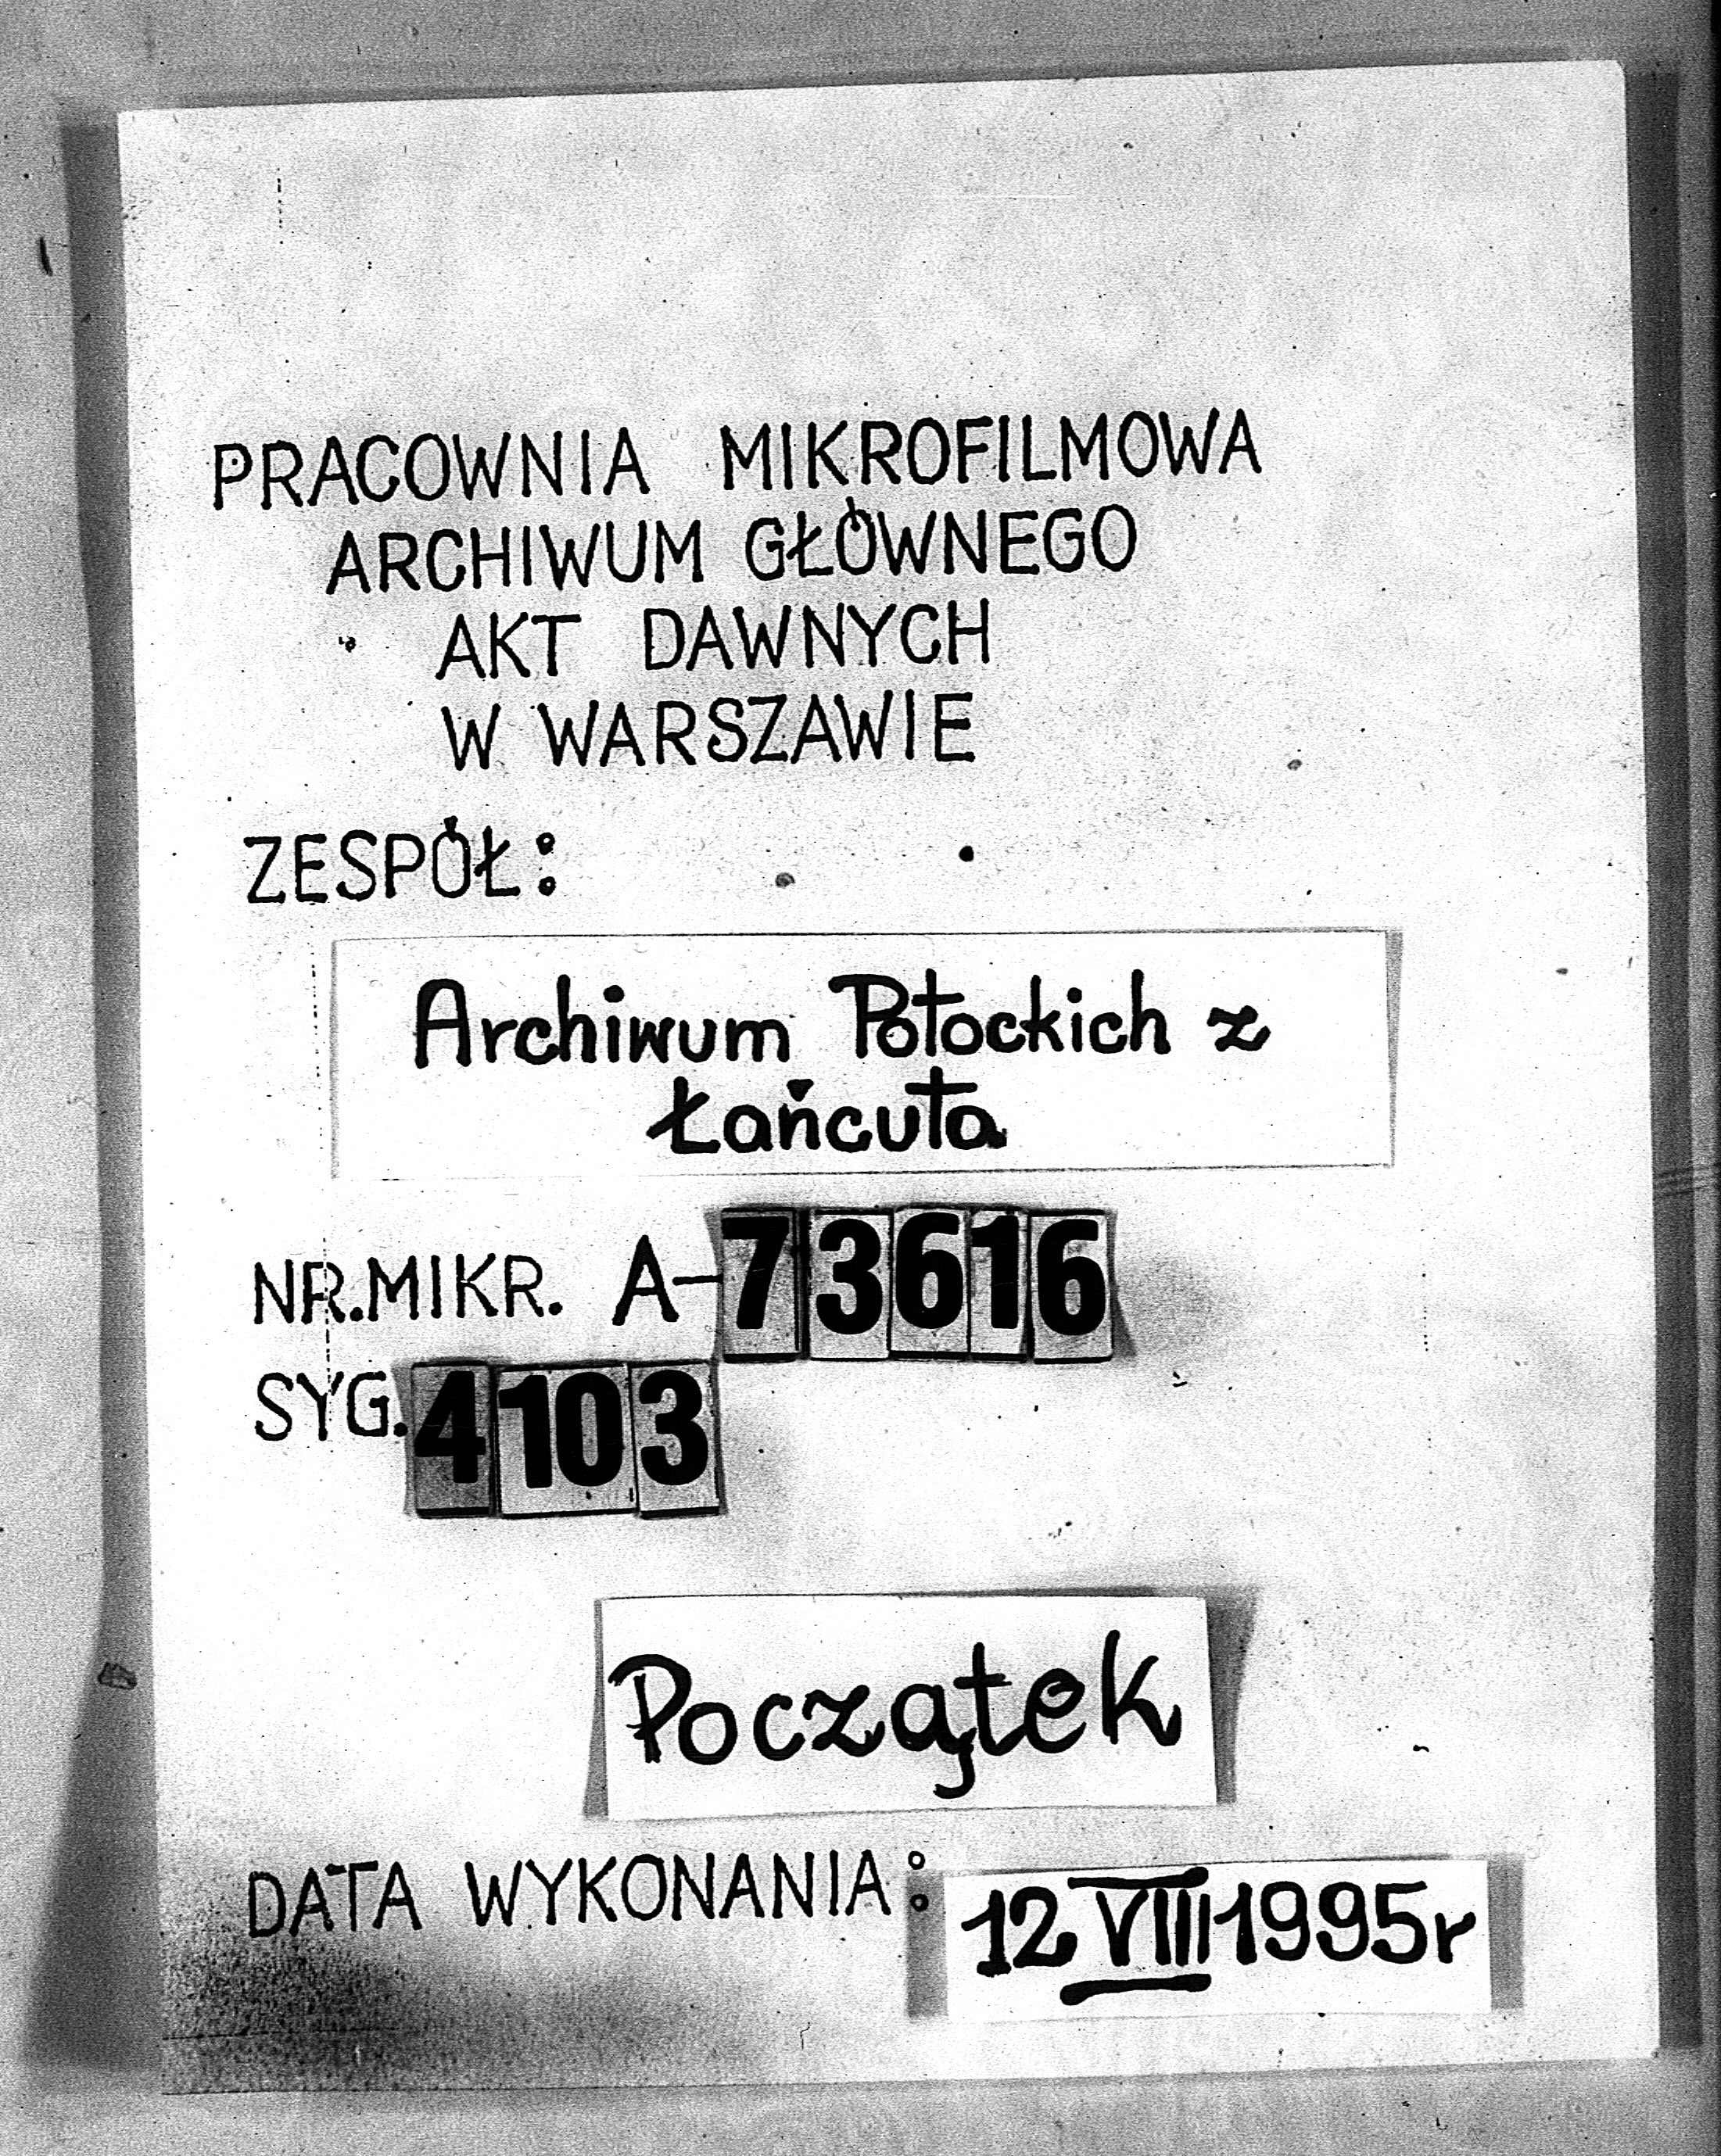 PRACOWNIA MIKROFILMOWA
ARCHIWUM GŁÓWNEGO
AKT DAWNYCH
W WARSZAWIE
ZESPÓŁ:
Archiwum Potockich z
Łańcuta
NR.MIKR. A-73616
SYG. 4103
Początek
DATA WYKONANIA: 12 VIII 1995r